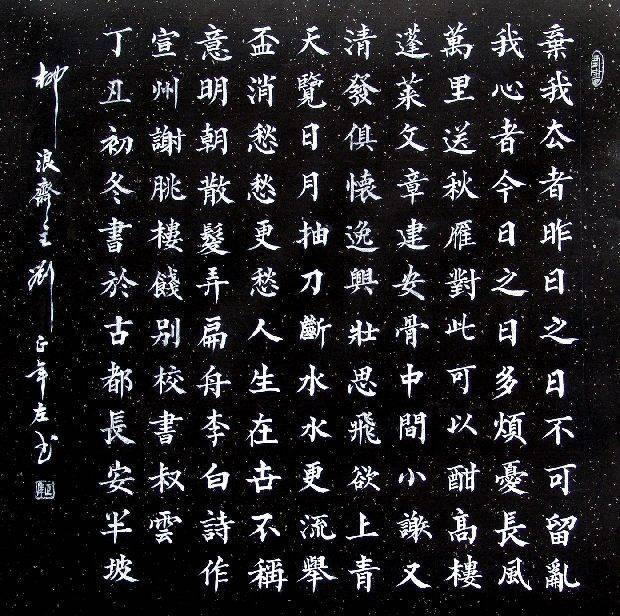 棄我厺者昨日之日不可留亂
我心者今日之日多煩憂長風
萬里送秋雁對此可以酣高樓
蓬萊文章建安骨中間小謝又
清發俱懷逸興壯思飛欲上青
天覽日月抽刀斷水水更流舉
盃消愁愁更愁人生在世不稱
意明朝散髮弄扁舟李白詩作
宣州謝朓樓餞别校書叔雲
丁丑初冬書於古都長安半坡
柳浪齋主劉正左书